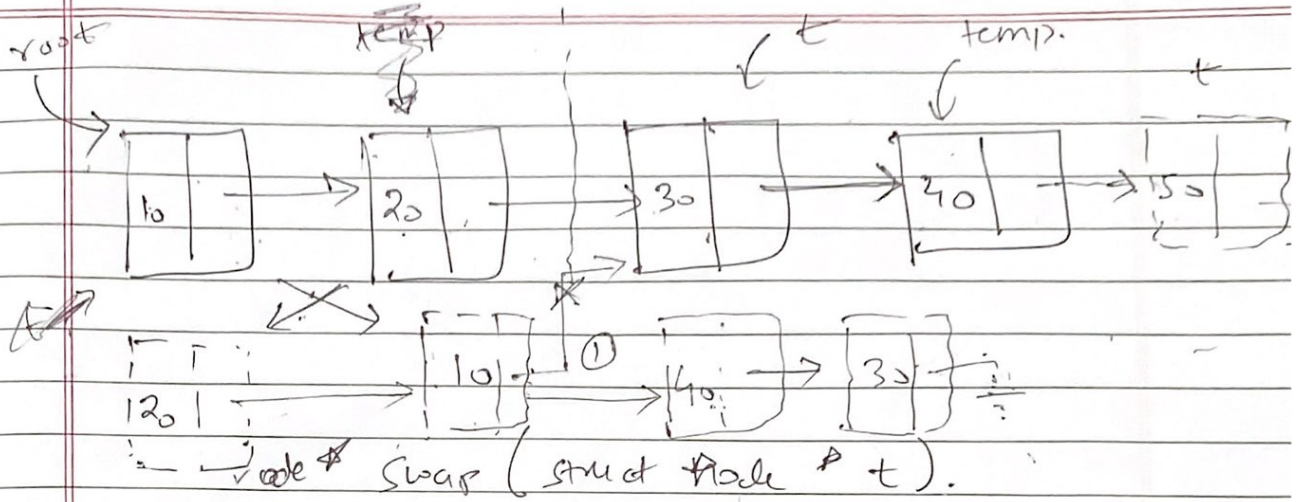 root temp t temp.
t
10 20 30 40 50
t
10 ① 40 30
20
node * swap ( struct Node * t ).